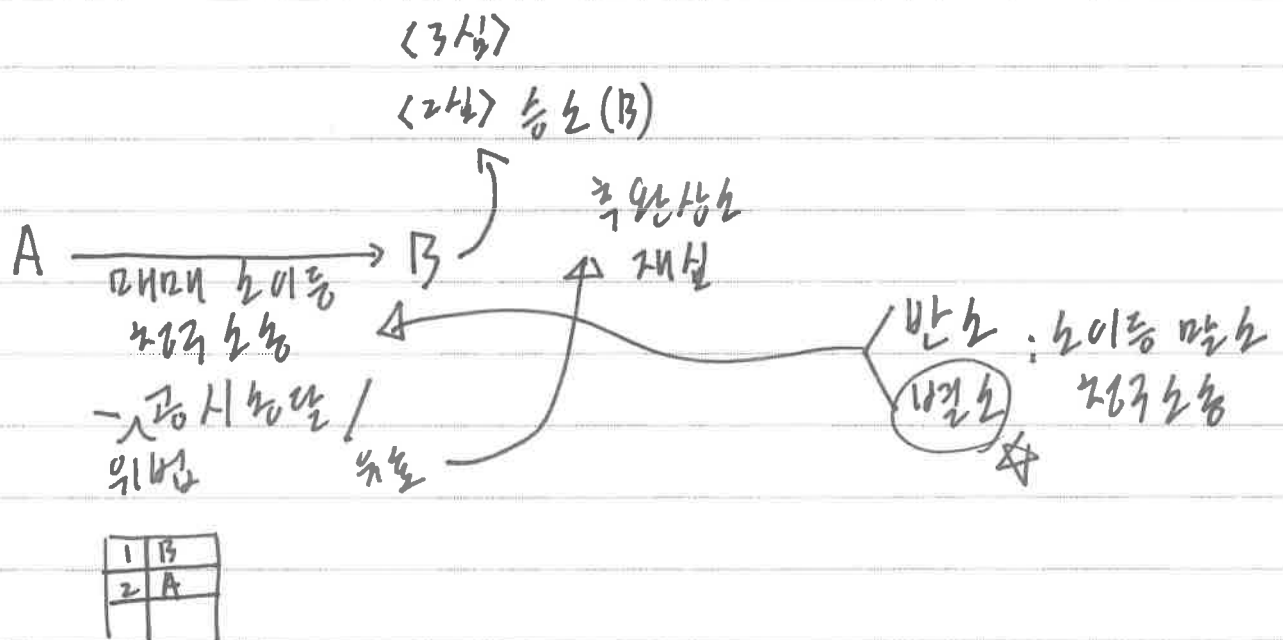 <3심>
<2심> 승소(B)
추완상소
재심
A → B
매매 소이등
청구소송
- 공시송달 /
위법
유효
반소 : 소이등 말소
별소 청구소송
☆
1 B
2 A